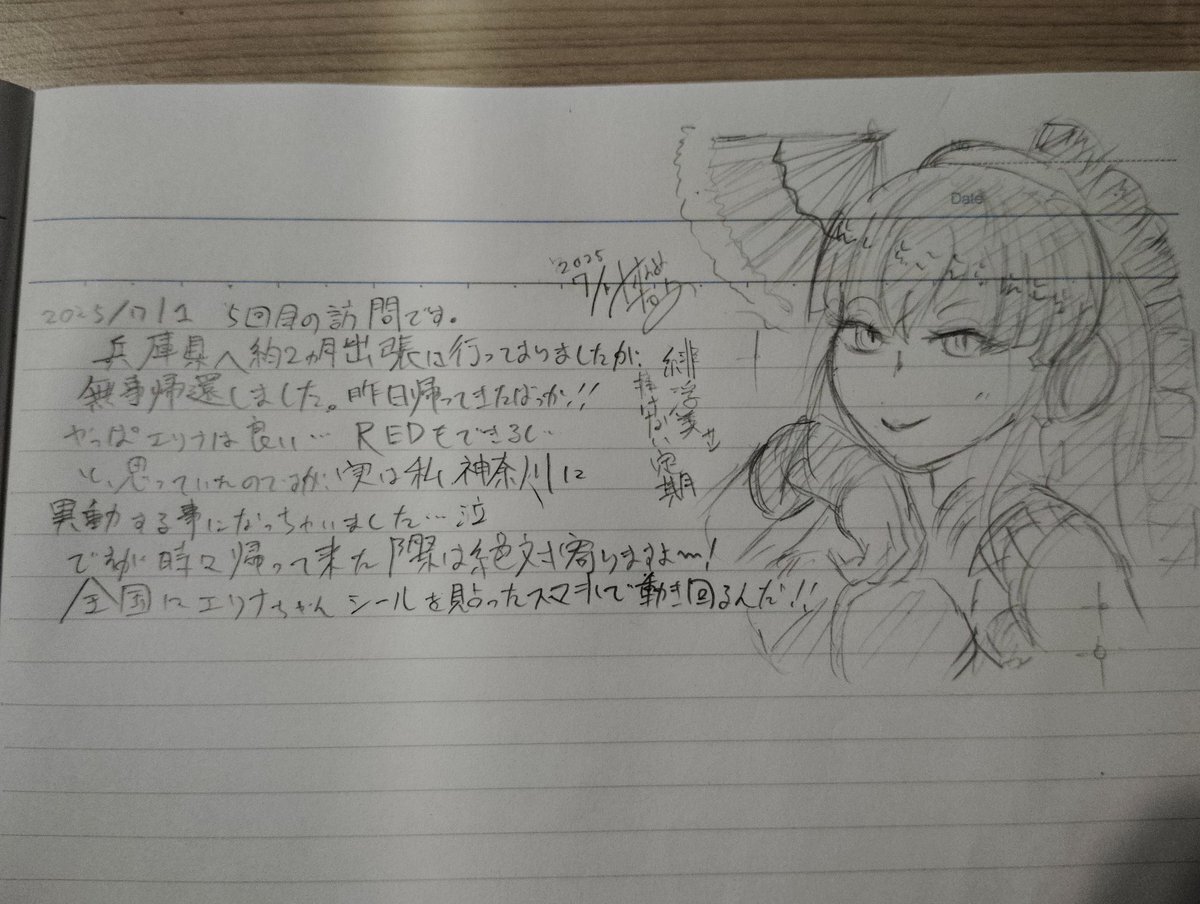 Date
'2025
7/1
2025/7/1 5回目の訪問です。
兵庫県へ約2ヵ月出張に行っておりましたが、
無事帰還しました。昨日帰ってきたばっか!!
やっぱエリナは良い… REDもできるし
と、思っていたのですが、実は私 神奈川に
異動する事になっちゃいました…泣
ですが時々帰って来た際は絶対寄りますよ〜!
全国にエリナちゃんシールを貼ったスマホで動き回るんだ!!
定期